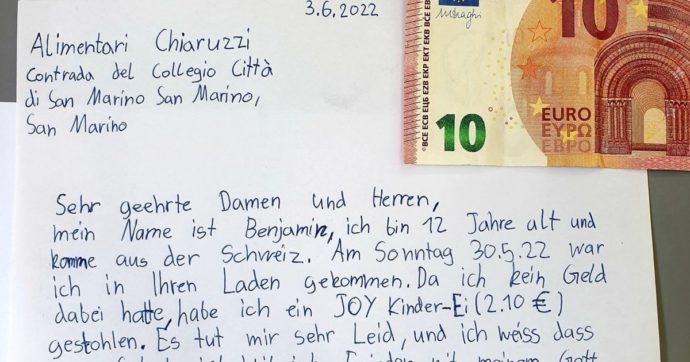 3.6.2022
Alimentari Chiaruzzi
Contrada del Collegio Città
di San Marino San Marino,
San Marino
Sehr geehrte Damen und Herren,
mein Name ist Benjamin, ich bin 12 Jahre alt und
komme aus der Schweiz. Am Sonntag 30.5.22 war
ich in Ihren Laden gekommen. Da ich kein Geld
dabei hatte, habe ich ein JOY Kinder-Ei (2.10 €)
gestohlen. Es tut mir sehr Leid, und ich weiss dass
10
BCE ECB ЕЦБ EZB EKP EKT EKB BĊE EBC
10
EURO
ΕΥΡΩ
ЕВРО